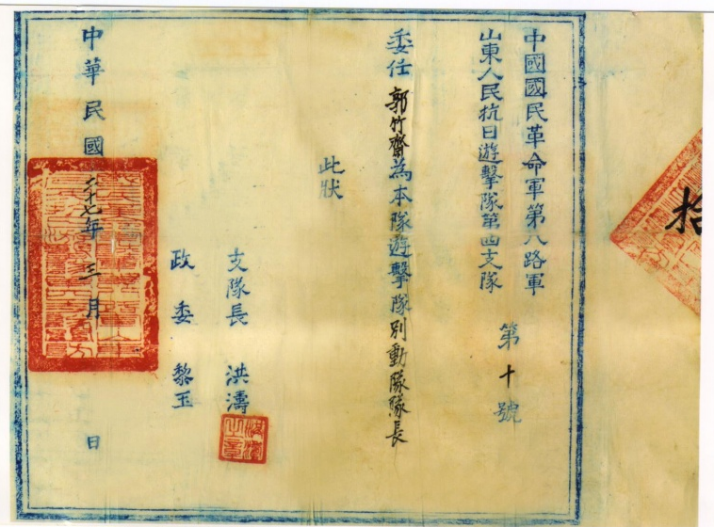 中國國民革命軍第八路軍
山東人民抗日遊擊隊第四支隊
第十號
委任郭竹齋為本隊遊擊隊別動隊隊長
此狀
支隊長 洪濤
政委 黎玉
中華民國二十七年三月 日
拾